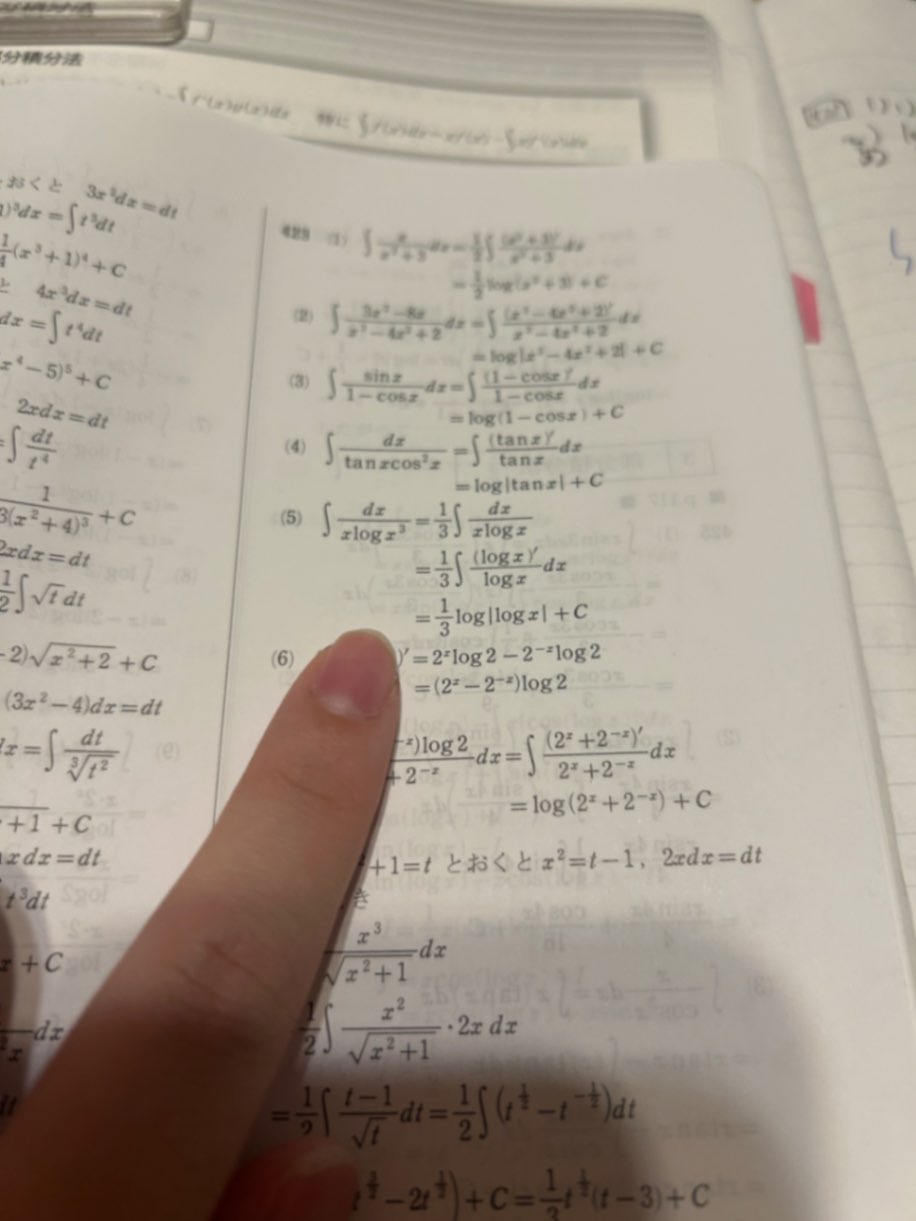 分積分法
特に
おくと 3x²dx=dt
1)³dx=∫t³dt
1/4(x³+1)⁴+C
と 4x³dx=dt
dx=∫t⁴dt
x⁴−5)⁵+C
2xdx=dt
=∫dt/t⁴
1/3(x²+4)³+C
2xdx=dt
1/2∫√t dt
-2)√x²+2+C
(3x²−4)dx=dt
dx=∫dt/∛t²
+1+C
xdx=dt
t³dt
x+C
dx
dt
423 (1) ∫x/(x²+3)dx=1/2∫(x²+3)′/(x²+3)dx
=1/2log(x²+3)+C
(2) ∫(3x²−8x)/(x³−4x²+2)dx=∫(x³−4x²+2)′/(x³−4x²+2)dx
=log|x³−4x²+2|+C
(3) ∫sinx/(1−cosx)dx=∫(1−cosx)′/(1−cosx)dx
=log(1−cosx)+C
(4) ∫dx/(tanxcos²x)=∫(tanx)′/tanx dx
=log|tanx|+C
(5) ∫dx/(xlogx³)=1/3∫dx/(xlogx)
=1/3∫(logx)′/logx dx
=1/3log|logx|+C
(6) )′=2ˣlog2−2⁻ˣlog2
=(2ˣ−2⁻ˣ)log2
⁻ˣ)log2/+2⁻ˣ dx=∫(2ˣ+2⁻ˣ)′/(2ˣ+2⁻ˣ)dx
=log(2ˣ+2⁻ˣ)+C
²+1=t とおくと x²=t−1, 2xdx=dt
き
x³/√(x²+1) dx
1/2∫x²/√(x²+1)·2x dx
=1/2∫(t−1)/√t dt=1/2∫(t^(1/2)−t^(−1/2))dt
t^(3/2)−2t^(1/2))+C=1/3t^(1/2)(t−3)+C